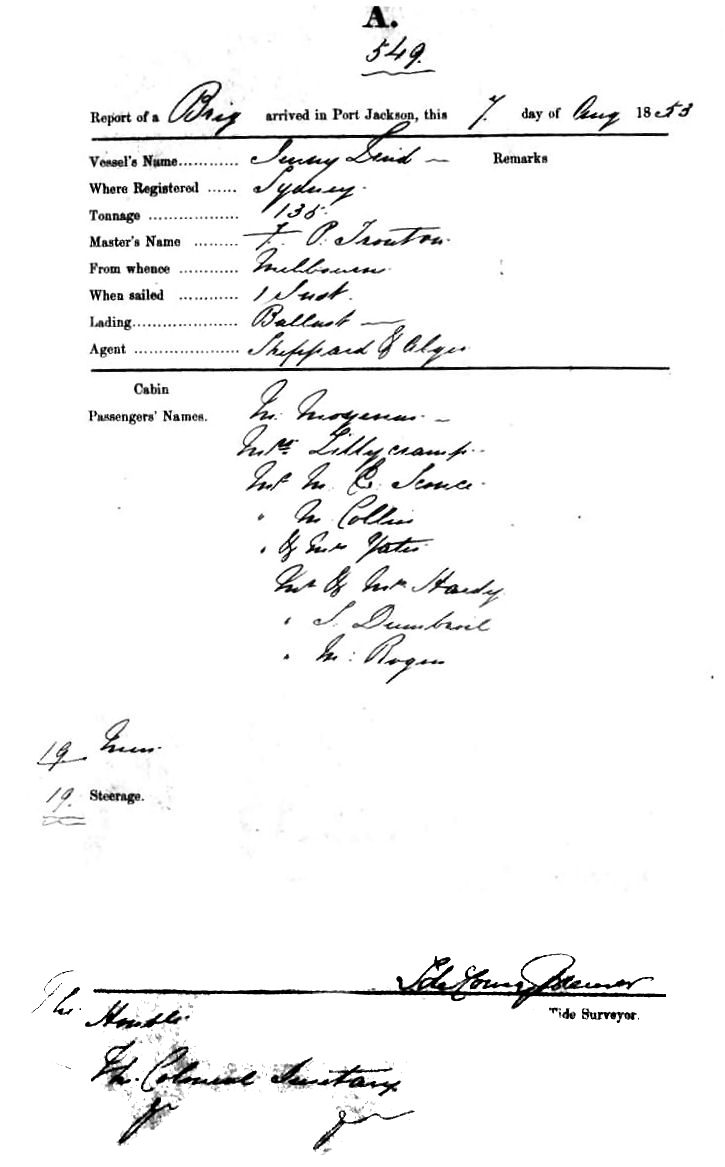 A.
549.
Report of a Brig arrived in Port Jackson, this 7. day of Aug 1853
Vessel's Name............ Jenny Lind — Remarks
Where Registered ...... Sydney.
Tonnage .................. 135.
Master's Name ......... F. P. Trouton.
From whence ............ Melbourne
When sailed ............ 1 Inst.
Lading..................... Ballast —
Agent ..................... Sheppard & Alger
Cabin
Passengers' Names. M. —
Mrs Lillycramp.
Mr M. C. Scence.
" M. Collins
" & Mrs Yates
Mr & Mrs Hardy
" S. Dumbrell
" M: Rogers
19 Men.
19. Steerage.
Tide Surveyor.
The Honble
The Colonial Secretary